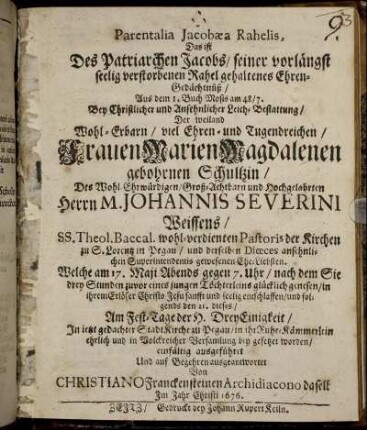 9.
Parentalia Jacobæa Rahelis,
Das ist
Des Patriarchen Jacobs / seiner vorlängst
seelig verstorbenen Rahel gehaltenes Ehren-
Gedächtnüß /
Aus dem 1. Buch Mosis am 48/7.
Bey Christlicher und Ansehnlicher Leich-Bestattung /
Der weiland
Wohl-Erbarn / viel Ehren- und Tugendreichen /
Frauen Marien Magdalenen
gebohrnen Schultzin /
Des Wohl-Ehrwürdigen / Groß-Achtbarn und Hochgelahrten
Herrn M. JOHANNIS SEVERINI
Weissens /
SS. Theol. Baccal. wohl-verdienten Pastoris der Kirchen
zu S. Lorentz in Pegau / und derselben Diœces ansehnli-
chen Superintendentis gewesenen Ehe-Liebsten.
Welche am 17. Maji Abends gegen 7. Uhr / nach dem Sie
drey Stunden zuvor eines jungen Töchterleins glücklich genesen / in
ihrem Erlöser Christo Jesu sanfft und seelig entschlaffen / und fol-
gends den 21. dieses /
Am Fest-Tage der H. DreyEinigkeit /
In ietzt gedachter Stadt Kirche zu Pegau / in ihr Ruhe-Kämmerlein
ehrlich und in Volckreicher Versamlung bey gesetzet worden /
einfältig ausgeführet
Und auf Begehren ausgeantwortet
Von
CHRISTIANO Franckensteinen Archidiacono daselbst
Im Jahr Christi 1676.
ZEITZ / Gedruckt bey Johann Rupert Keiln.